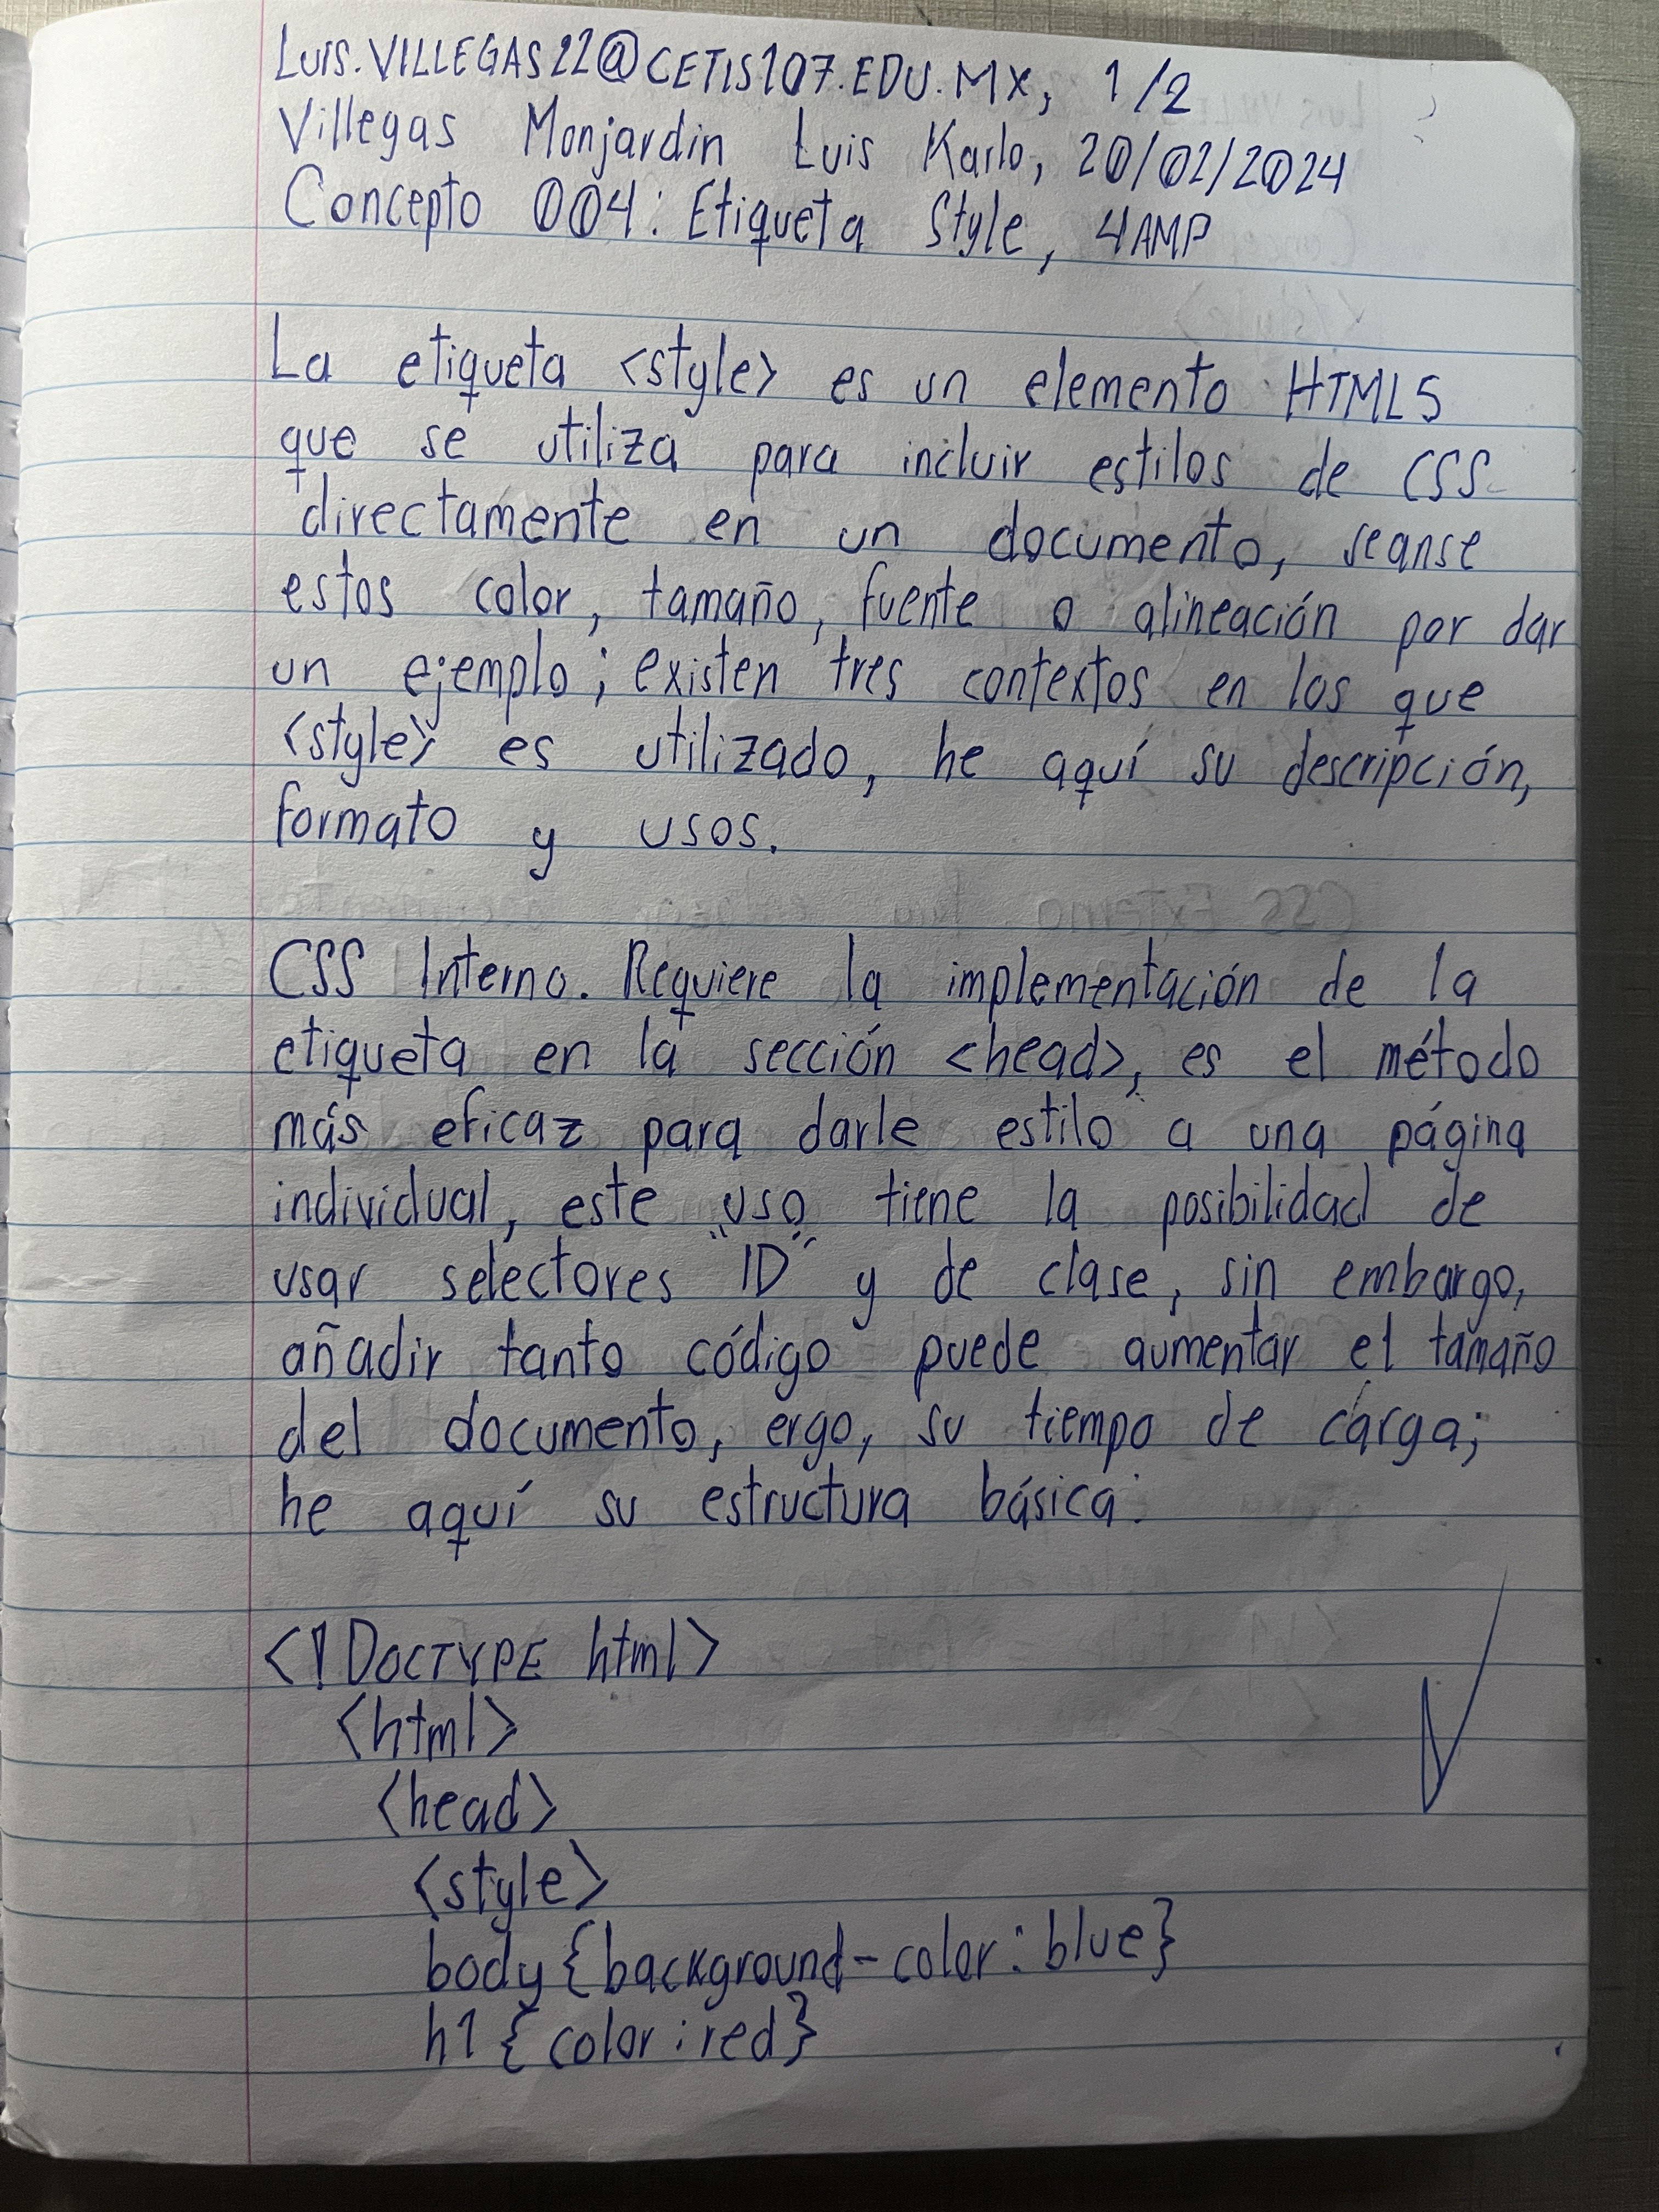 LUIS.VILLEGAS22@CETIS107.EDU.MX, 1/2
Villegas Monjardin Luis Karlo, 20/02/2024
Concepto 004: Etiqueta Style, 4AMP
La etiqueta <style> es un elemento HTML5
que se utiliza para incluir estilos de CSS
directamente en un documento, seanse
estos color, tamaño, fuente o alineación por dar
un ejemplo; existen tres contextos en los que
<style> es utilizado, he aquí su descripción,
formato y usos.
CSS Interno. Requiere la implementación de la
etiqueta en la sección <head>, es el método
más eficaz para darle estilo a una página
individual, este uso tiene la posibilidad de
usar selectores "ID" y de clase, sin embargo,
añadir tanto código puede aumentar el tamaño
del documento, ergo, su tiempo de carga;
he aquí su estructura básica:
<!DOCTYPE html>
<html>
<head>
<style>
body{background-color:blue}
h1{color:red}